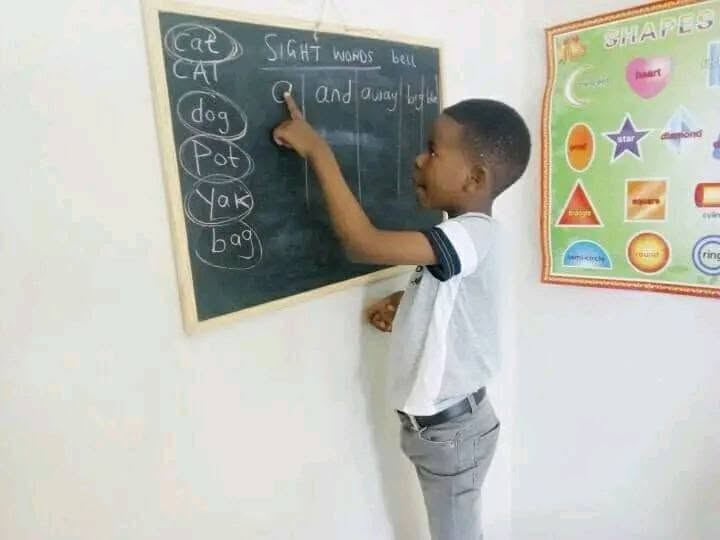 cat
CAT
dog
Pot
Yak
bag
SIGHT WORDS bell
a and away big
SHAPES
heart
oval star diamond
triangle square cylin
semi-circle round ring